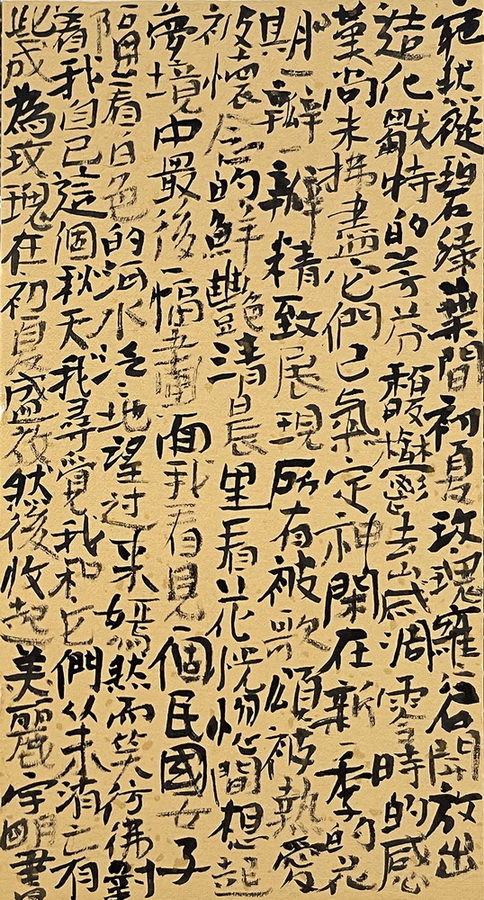 從碧綠葉間初夏玫瑰雍容開放出
造化獨特的芳芬馥鬱去歲凋零時的感
嘆尚未拂盡它們已氣定神閑在新一季的花
期一瓣一瓣精致展現所有被歌頌被熱愛
被懷念的鮮艷清晨里看花恍惚間想起
夢境中最後一幅畫面我看見一個民國女子
隔着白色的河水泛泛地望过来嫣然而笑仿佛對
着我自己這個秋天我尋覓我和它們从未消亡有
此成為玫瑰在初夏盛放然後收起美麗宇明書